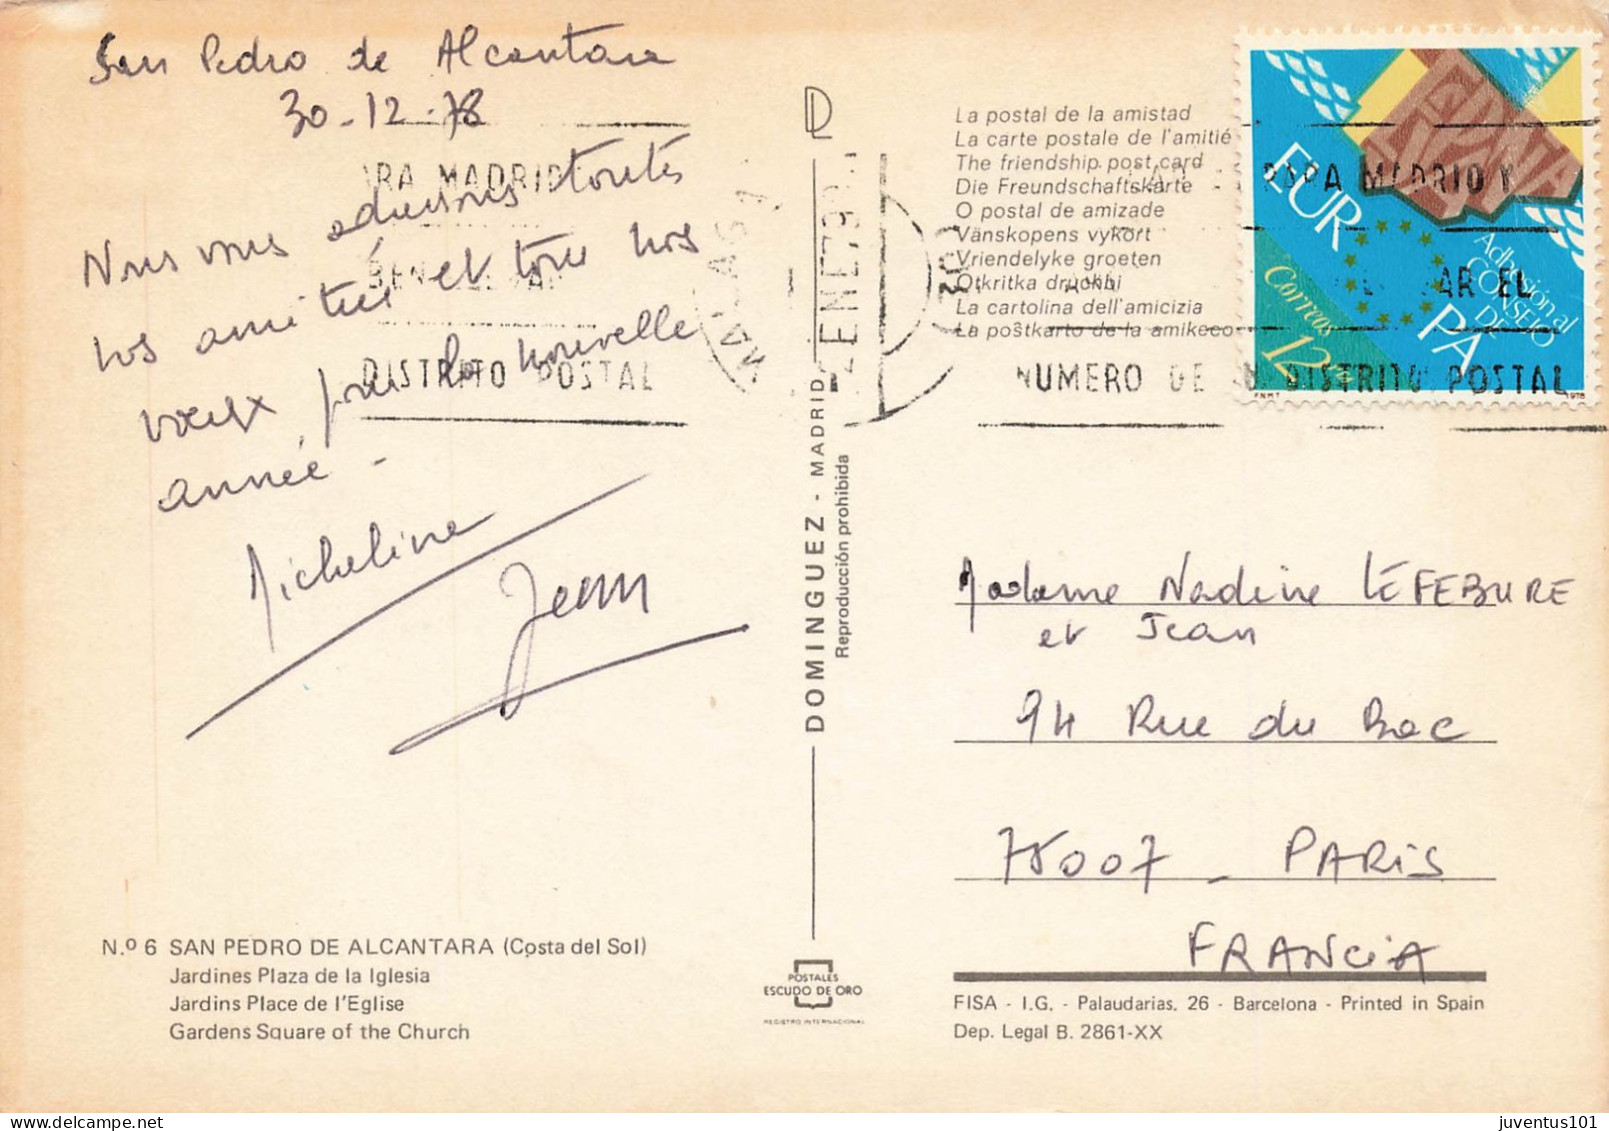 San Pedro de Alcantara
30-12-78
Nous vous adressons toutes
nos amitiés et tous nos
voeux pour la nouvelle
année -
Micheline
Jean
N.º 6 SAN PEDRO DE ALCANTARA (Costa del Sol)
Jardines Plaza de la Iglesia
Jardins Place de l'Eglise
Gardens Square of the Church
ARA MADRID
DISTRITO POSTAL
MALAGA
2 ENE 79
DOMINGUEZ - MADRID
Reproducción prohibida
POSTALES
ESCUDO DE ORO
REGISTRO INTERNACIONAL
La postal de la amistad
La carte postale de l'amitié
The friendship post card
Die Freundschaftskarte
O postal de amizade
Vänskopens vykort
Vriendelyke groeten
Otkritka druchbi
La cartolina dell'amicizia
La poŝtkarto de la amikeco
PARA MADRID Y
AR EL
NUMERO DE SU DISTRITO POSTAL
EUROPA
Adhesion al
CONSEJO
DE
Correos
12
FNMT
1978
Madame Nadine LEFEBURE
et Jean
94 Rue du Bac
75007 - PARIS
FRANCIA
FISA - I.G. - Palaudarias, 26 - Barcelona - Printed in Spain
Dep. Legal B. 2861-XX
juventus101